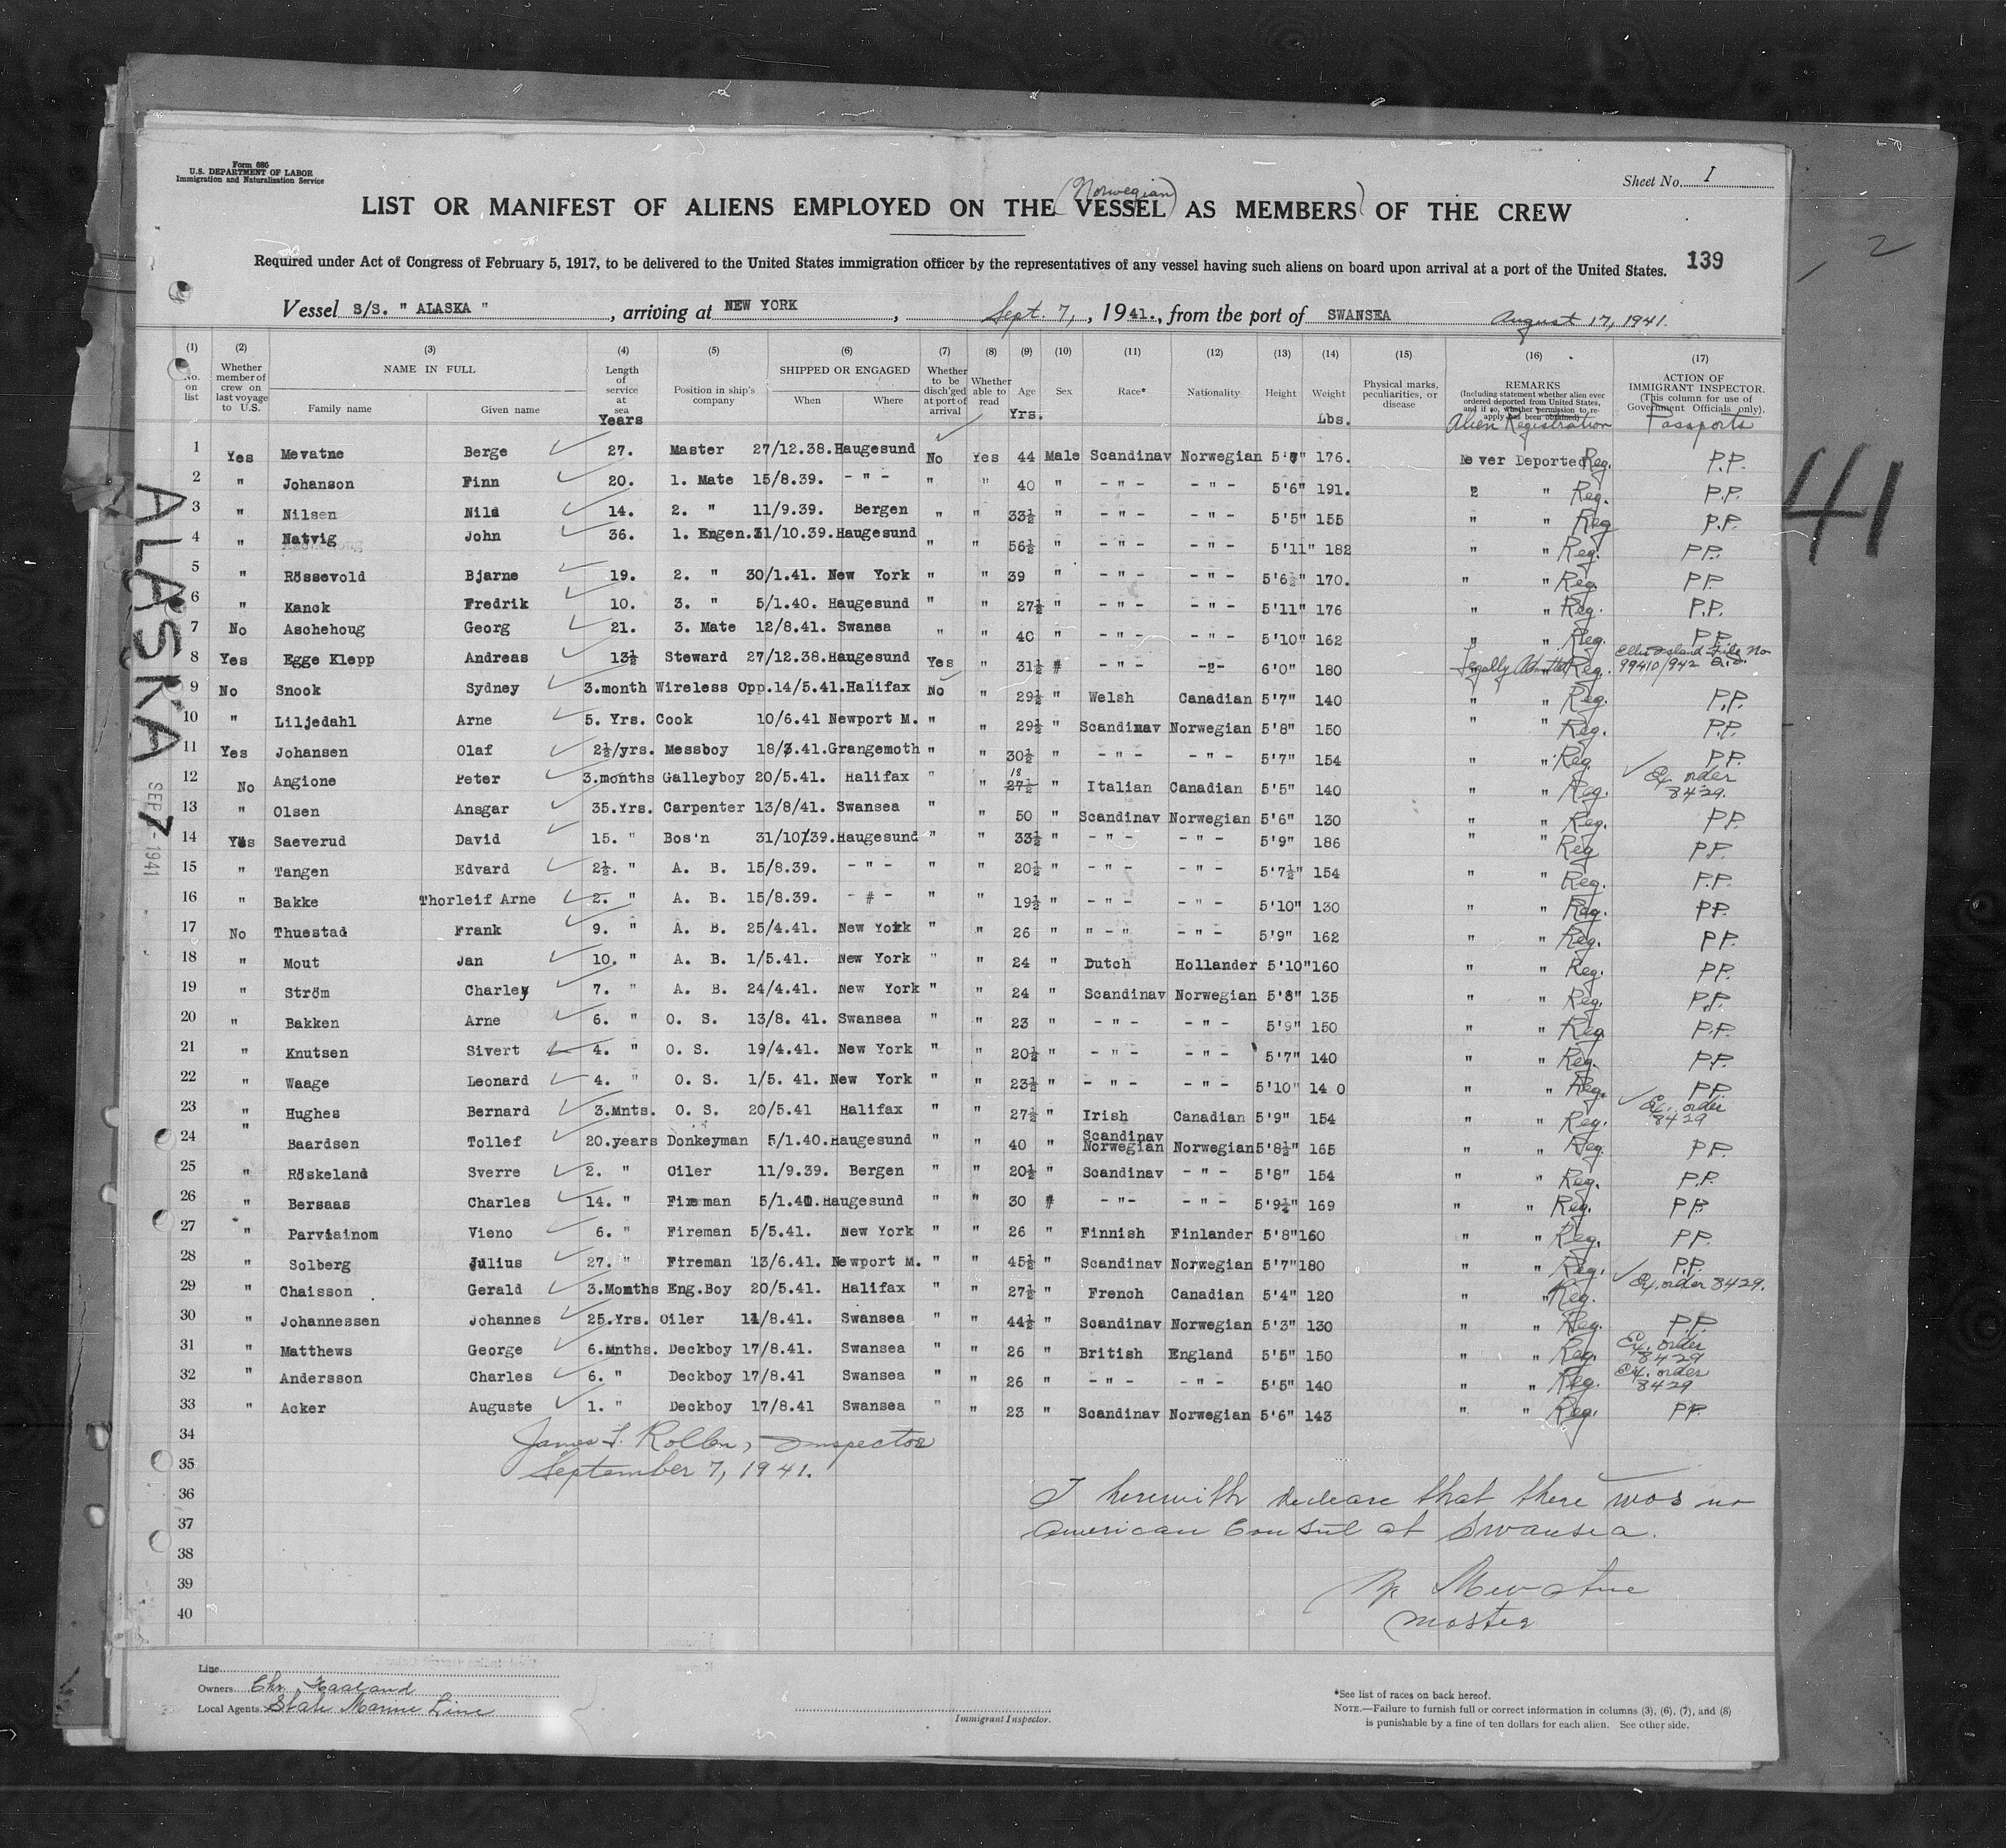 Form 686
U.S. DEPARTMENT OF LABOR
Immigration and Naturalization Service
Sheet No. I
(Norwegian)
LIST OR MANIFEST OF ALIENS EMPLOYED ON THE VESSEL AS MEMBERS OF THE CREW
Required under Act of Congress of February 5, 1917, to be delivered to the United States immigration officer by the representatives of any vessel having such aliens on board upon arrival at a port of the United States.
139
2
Vessel S/S. " ALASKA " , arriving at NEW YORK , Sept. 7, , 1941., from the port of SWANSEA August 17, 1941.
(1) (2) (3) (4) (5) (6) (7) (8) (9) (10) (11) (12) (13) (14) (15) (16) (17)
No. on list
Whether member of crew on last voyage to U.S.
NAME IN FULL
Family name Given name
Length of service at sea
Years
Position in ship's company
SHIPPED OR ENGAGED
When Where
Whether to be disch'ged at port of arrival
Whether able to read
Age
Yrs.
Sex
Race*
Nationality
Height
Weight
Lbs.
Physical marks, peculiarities, or disease
REMARKS
(Including statement whether alien ever ordered deported from United States, and if so, whether permission to re-apply has been obtained)
Alien Registration
ACTION OF IMMIGRANT INSPECTOR.
(This column for use of Government Officials only).
Passports
1 Yes Mevatne Berge 27. Master 27/12.38. Haugesund No Yes 44 Male Scandinav Norwegian 5'7" 176. Never Deported Reg. P.P.
2 " Johanson Finn 20. 1. Mate 15/8.39. - " - " " 40 " - " - - " - 5'6" 191. " Reg. P.P.
3 " Nilsen Nils 14. 2. " 11/9.39. Bergen " " 33½ " - " - - " - 5'5" 155 " " Reg P.P.
4 " Natvig John 36. 1. Engen. 31/10.39. Haugesund " " 56½ " - " - - " - 5'11" 182 " " Reg. P.P.
5 " Rössevold Bjarne 19. 2. " 30/1.41. New York " " 39 " - " - - " - 5'6½" 170. " " Reg P.P.
6 " Kanck Fredrik 10. 3. " 5/1.40. Haugesund " " 27½ " - " - - " - 5'11" 176 " " Reg. P.P.
7 No Aschehoug Georg 21. 3. Mate 12/8.41. Swansea " " 40 " - " - - " - 5'10" 162 " " Reg. P.P.
8 Yes Egge Klepp Andreas 13½ Steward 27/12.38 Haugesund Yes " 31½ # - " - -"- 6'0" 180 Legally Admitted Reg. Ellis Island File No 99410/942
9 No Snook Sydney 3.month Wireless Opp. 14/5.41. Halifax No " 29½ " Welsh Canadian 5'7" 140 " " Reg. P.P.
10 " Liljedahl Arne 5. Yrs. Cook 10/6.41 Newport M. " " 29½ " Scandinav Norwegian 5'8" 150 " " Reg. P.P.
11 Yes Johansen Olaf 2½/yrs. Messboy 18/3.41. Grangemoth " " 30½ " - " - - " - 5'7" 154 " " Reg. P.P.
12 No Angione Peter 3.months Galleyboy 20/5.41. Halifax " " 18 27½ " Italian Canadian 5'5" 140 " " Reg. Ex. order 8429.
13 " Olsen Ansgar 35.Yrs. Carpenter 13/8/41. Swansea " " 50 Scandinav Norwegian 5'6" 130 " " Reg. P.P.
14 Yes Saeverud David 15. " Bos'n 31/10/39. Haugesund " " 33½ " - " - - " - 5'9" 186 " " Reg P.P.
15 " Tangen Edvard 2½. " A. B. 15/8.39. - " - " " 20½ " - " - - " - 5'7½" 154 " " Reg. P.P.
16 " Bakke Thorleif Arne 2. " A. B. 15/8.39. - # - " " 19½ " - " - - " - 5'10" 130 " " Reg. P.P.
17 No Thuestad Frank 9. " A. B. 25/4.41. New York " " 26 " " - " - - " - 5'9" 162 " " Reg. P.P.
18 " Mout Jan 10. " A. B. 1/5.41. New York " " 24 " Dutch Hollander 5'10" 160 " " Reg. P.P.
19 " Ström Charley 7. " A. B. 24/4.41. New York " " 24 " Scandinav Norwegian 5'8" 135 " " Reg. P.P.
20 " Bakken Arne 6. " O. S. 13/8. 41. Swansea " " 23 " - " - - " - 5'9" 150 " " Reg P.P.
21 " Knutsen Sivert 4. " O. S. 19/4.41. New York " " 20½ " - " - - " - 5'7" 140 " " Reg. P.P.
22 " Waage Leonard 4. " O. S. 1/5. 41. New York " " 23½ " - " - - " - 5'10" 14 0 " " Reg. P.P.
23 " Hughes Bernard 3.Mnts. O. S. 20/5.41 Halifax " " 27½ " Irish Canadian 5'9" 154 " " Reg. Ex. order 8429
24 " Baardsen Tollef 20.years Donkeyman 5/1.40. Haugesund " " 40 " Scandinav Norwegian Norwegian 5'8½" 165 " " Reg. P.P.
25 " Röskeland Sverre 2. " Oiler 11/9.39. Bergen " " 20½ " Scandinav - " - 5'8" 154 " " Reg. P.P.
26 " Bersaas Charles 14. " Fireman 5/1.40. Haugesund " " 30 # - "- - " - 5'9½" 169 " " Reg. P.P.
27 " Parviainom Vieno 6. " Fireman 5/5.41. New York " " 26 " Finnish Finlander 5'8" 160 " " Reg. P.P.
28 " Solberg Julius 27. " Fireman 13/6.41. Newport M. " " 45½ " Scandinav Norwegian 5'7" 180 " " Reg. P.P.
29 " Chaisson Gerald 3.Months Eng.Boy 20/5.41. Halifax " " 27½ " French Canadian 5'4" 120 " " Reg. Ex. order 8429.
30 " Johannessen Johannes 25.Yrs. Oiler 11/8.41. Swansea " " 44½ " Scandinav Norwegian 5'3" 130 " " Reg. P.P.
31 " Matthews George 6.Mnths. Deckboy 17/8.41. Swansea " " 26 " British England 5'5" 150 " " Reg. Ex. order 8429
32 " Andersson Charles 6. " Deckboy 17/8.41 Swansea " " 26 " - " - - " - 5'5" 140 " " Reg. Ex. order 8429
33 " Acker Auguste 1. " Deckboy 17/8.41 Swansea " " 23 " Scandinav Norwegian 5'6" 143 " " Reg. P.P.
34
James F. Rollen, Inspector
35
September 7, 1941.
36
I herewith declare that there was no
37
American Consul at Swansea.
38
39
Mevatne
40
Master
ALASKA
SEP 7 - 1941
41
Line
Owners. Chr. Haaland
Local Agents. State Marine Line
Immigrant Inspector.
*See list of races on back hereof.
NOTE.—Failure to furnish full or correct information in columns (3), (6), (7), and (8)
is punishable by a fine of ten dollars for each alien. See other side.